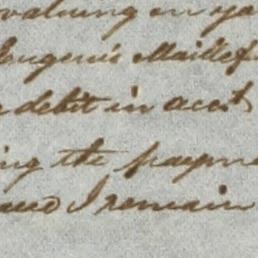 valuing on yo
Eugenis Maillef
debit in acct
ing the payme
and I remain